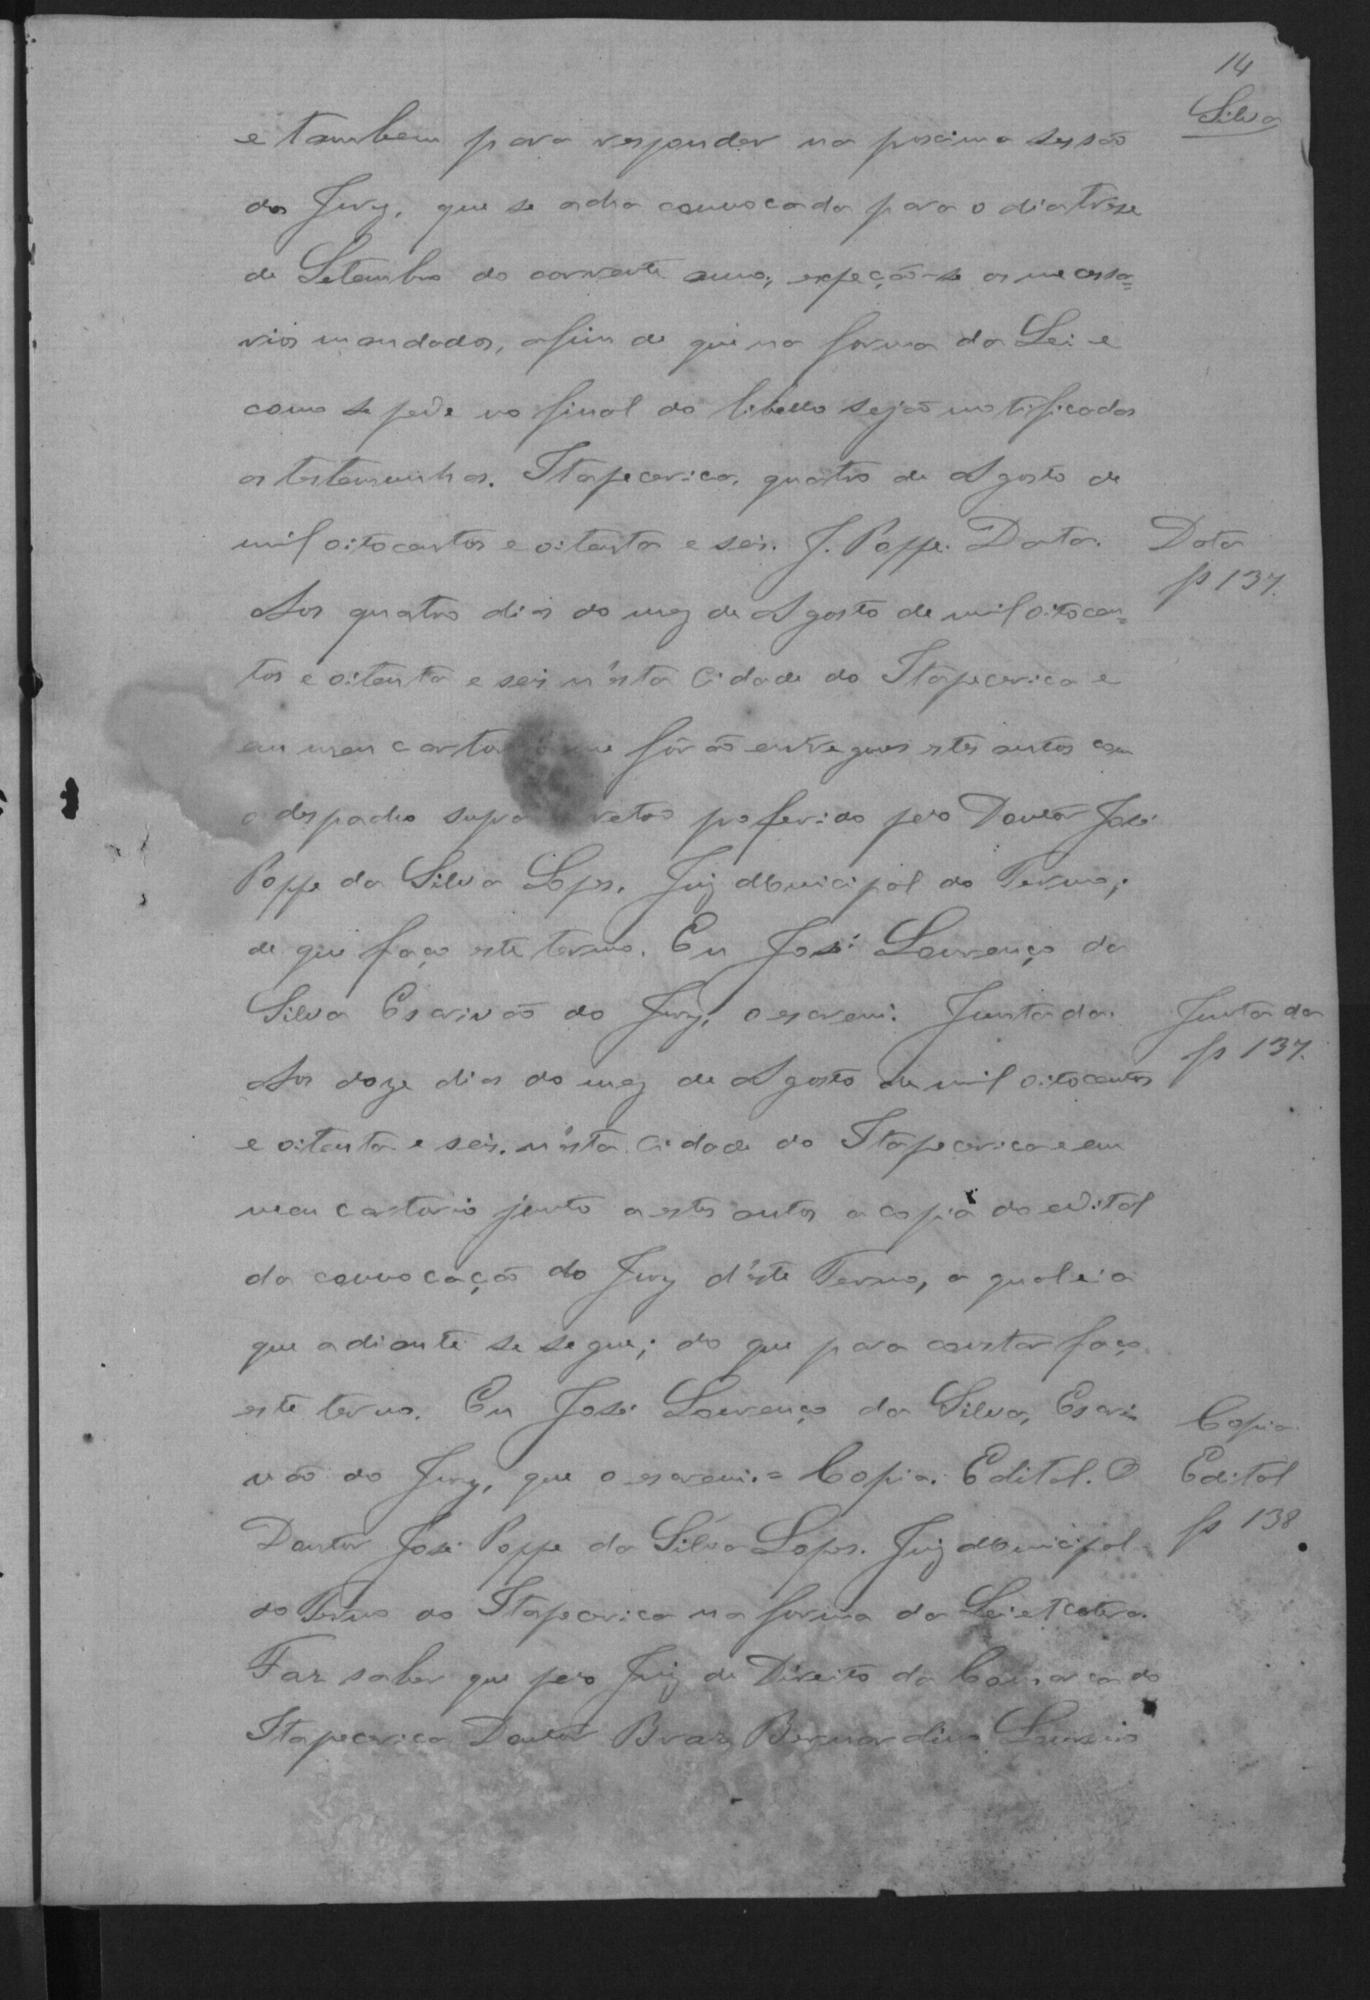 14
Silva
e tambem para responder na procima sessão
do Jury, que se acha convocada para o dia trese
de Setembro do corrente anno; expeção-se os necessa=
rios mandados, afim de que na forma da Lei e
como se pede no final do libello sejão notificadas
as testemunhas. Itapecerica, quatro de Agosto de
mil oitocentos e oitenta e seis. J. Poppe. Data.
Data
fs 137.
Aos quatro dias do mez de Agosto de mil oitocen=
tos e oitenta e seis n'esta Cidade do Itapecerica e
em meu cartorio me forão entregues estes autos com
o despacho supra retro proferido pelo Doutor José
Poppe da Silva Lopes. Juiz Municipal do Termo;
de que faço este termo. Eu José Lourenço da
Silva Escrivão do Jury, o escrevi. Juntada.
Juntada
fs 137.
Aos doze dias do mez de Agosto de mil oitocentos
e oitenta e seis, n'esta Cidade do Itapecerica e em
meu cartorio junto a estes autos a copia do edital
da convocação do Jury d'este Termo, a qual é a
que adiante se segue; do que para constar faço
este termo. Eu José Lourenço da Silva, Escri=
vão do Jury, que o escrevi.= Copia. Edital. O
Copia
Edital
fs 138
Doutor José Poppe da Silva Lopes. Juiz Municipal
do Termo do Itapecerica na forma da Lei etcetera.
Faz saber que pelo Juiz de Direito da Comarca do
Itapecerica Doutor Braz Bernardino Loureiro